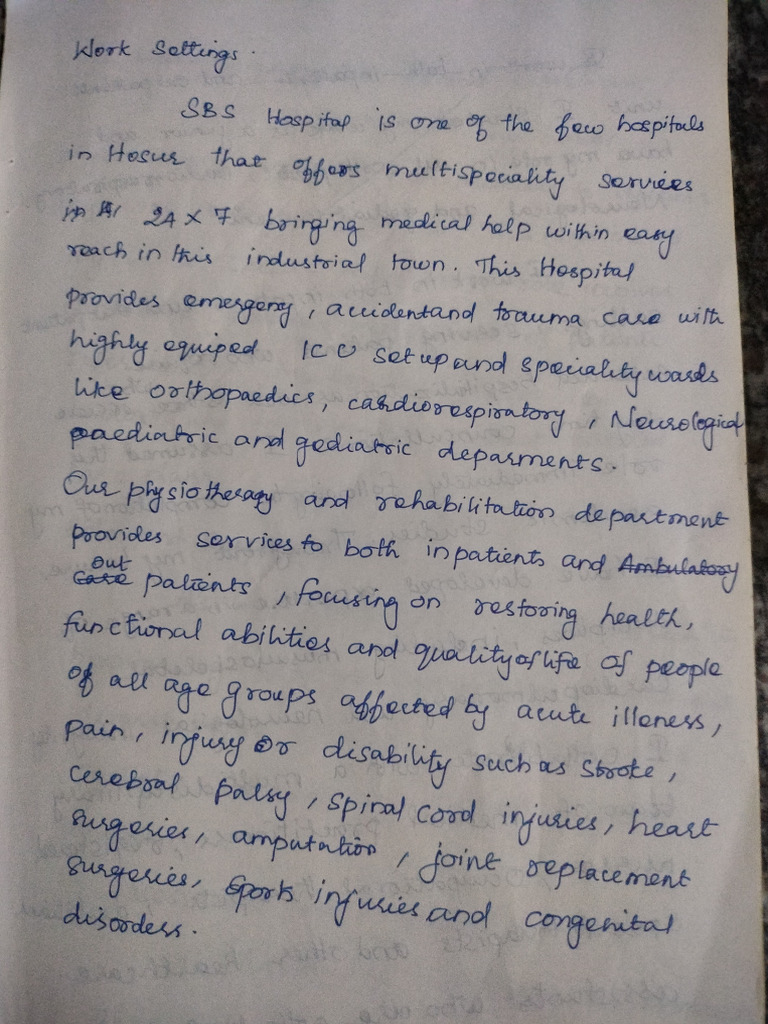 Work Settings.
SBS Hospital is one of the few hospitals
in Hosur that offers multispeciality services
in 24 x 7 bringing medical help within easy
reach in this industrial town. This Hospital
provides emergency, accident and trauma care with
highly equiped ICU setup and speciality wards
like orthopaedics, cardiorespiratory, Neurological
paediatric and gediatric deparments.
Our physiotherapy and rehabilitation department
provides services to both inpatients and Ambulatory
Case out patients, focusing on restoring health,
functional abilities and quality of life of people
of all age groups affected by acute illeness,
pain, injury or disability such as stroke,
cerebral palsy, spinal cord injuries, heart
surgeries, amputation, joint replacement
surgeries, sports injuries and congenital
disorders.